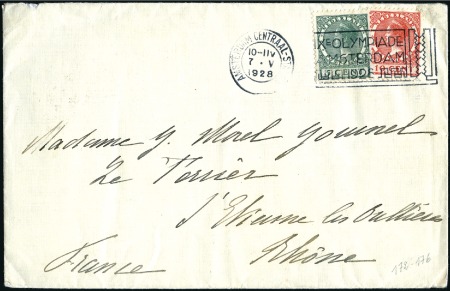 AMSTERDAM CENTRAAL-S
10-11V
7 · V
1928
Xe OLYMPIADE
AMSTERDAM
Madame G. Morel Journel
Le Terrier
S'Etienne les Oullières
Rhône
France
172-176